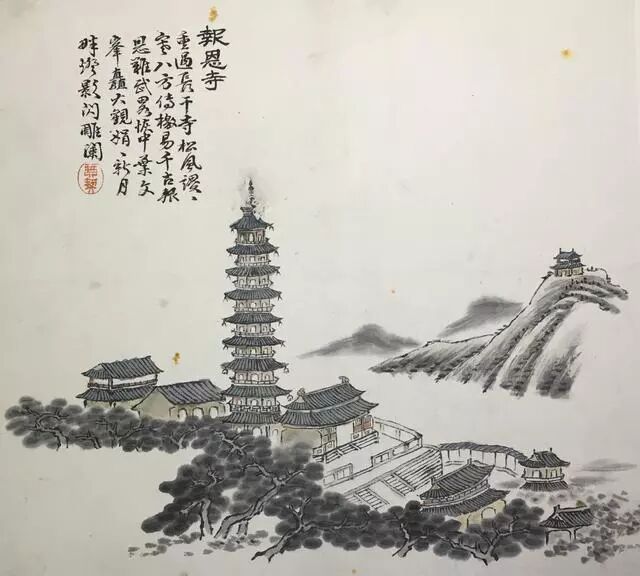 報恩寺
重過長干寺松風謖〻
寒八方傳檄易千古報
恩難武畧恢中葉文
峯矗大觀娟〻新月
畔燈影閃雕闌